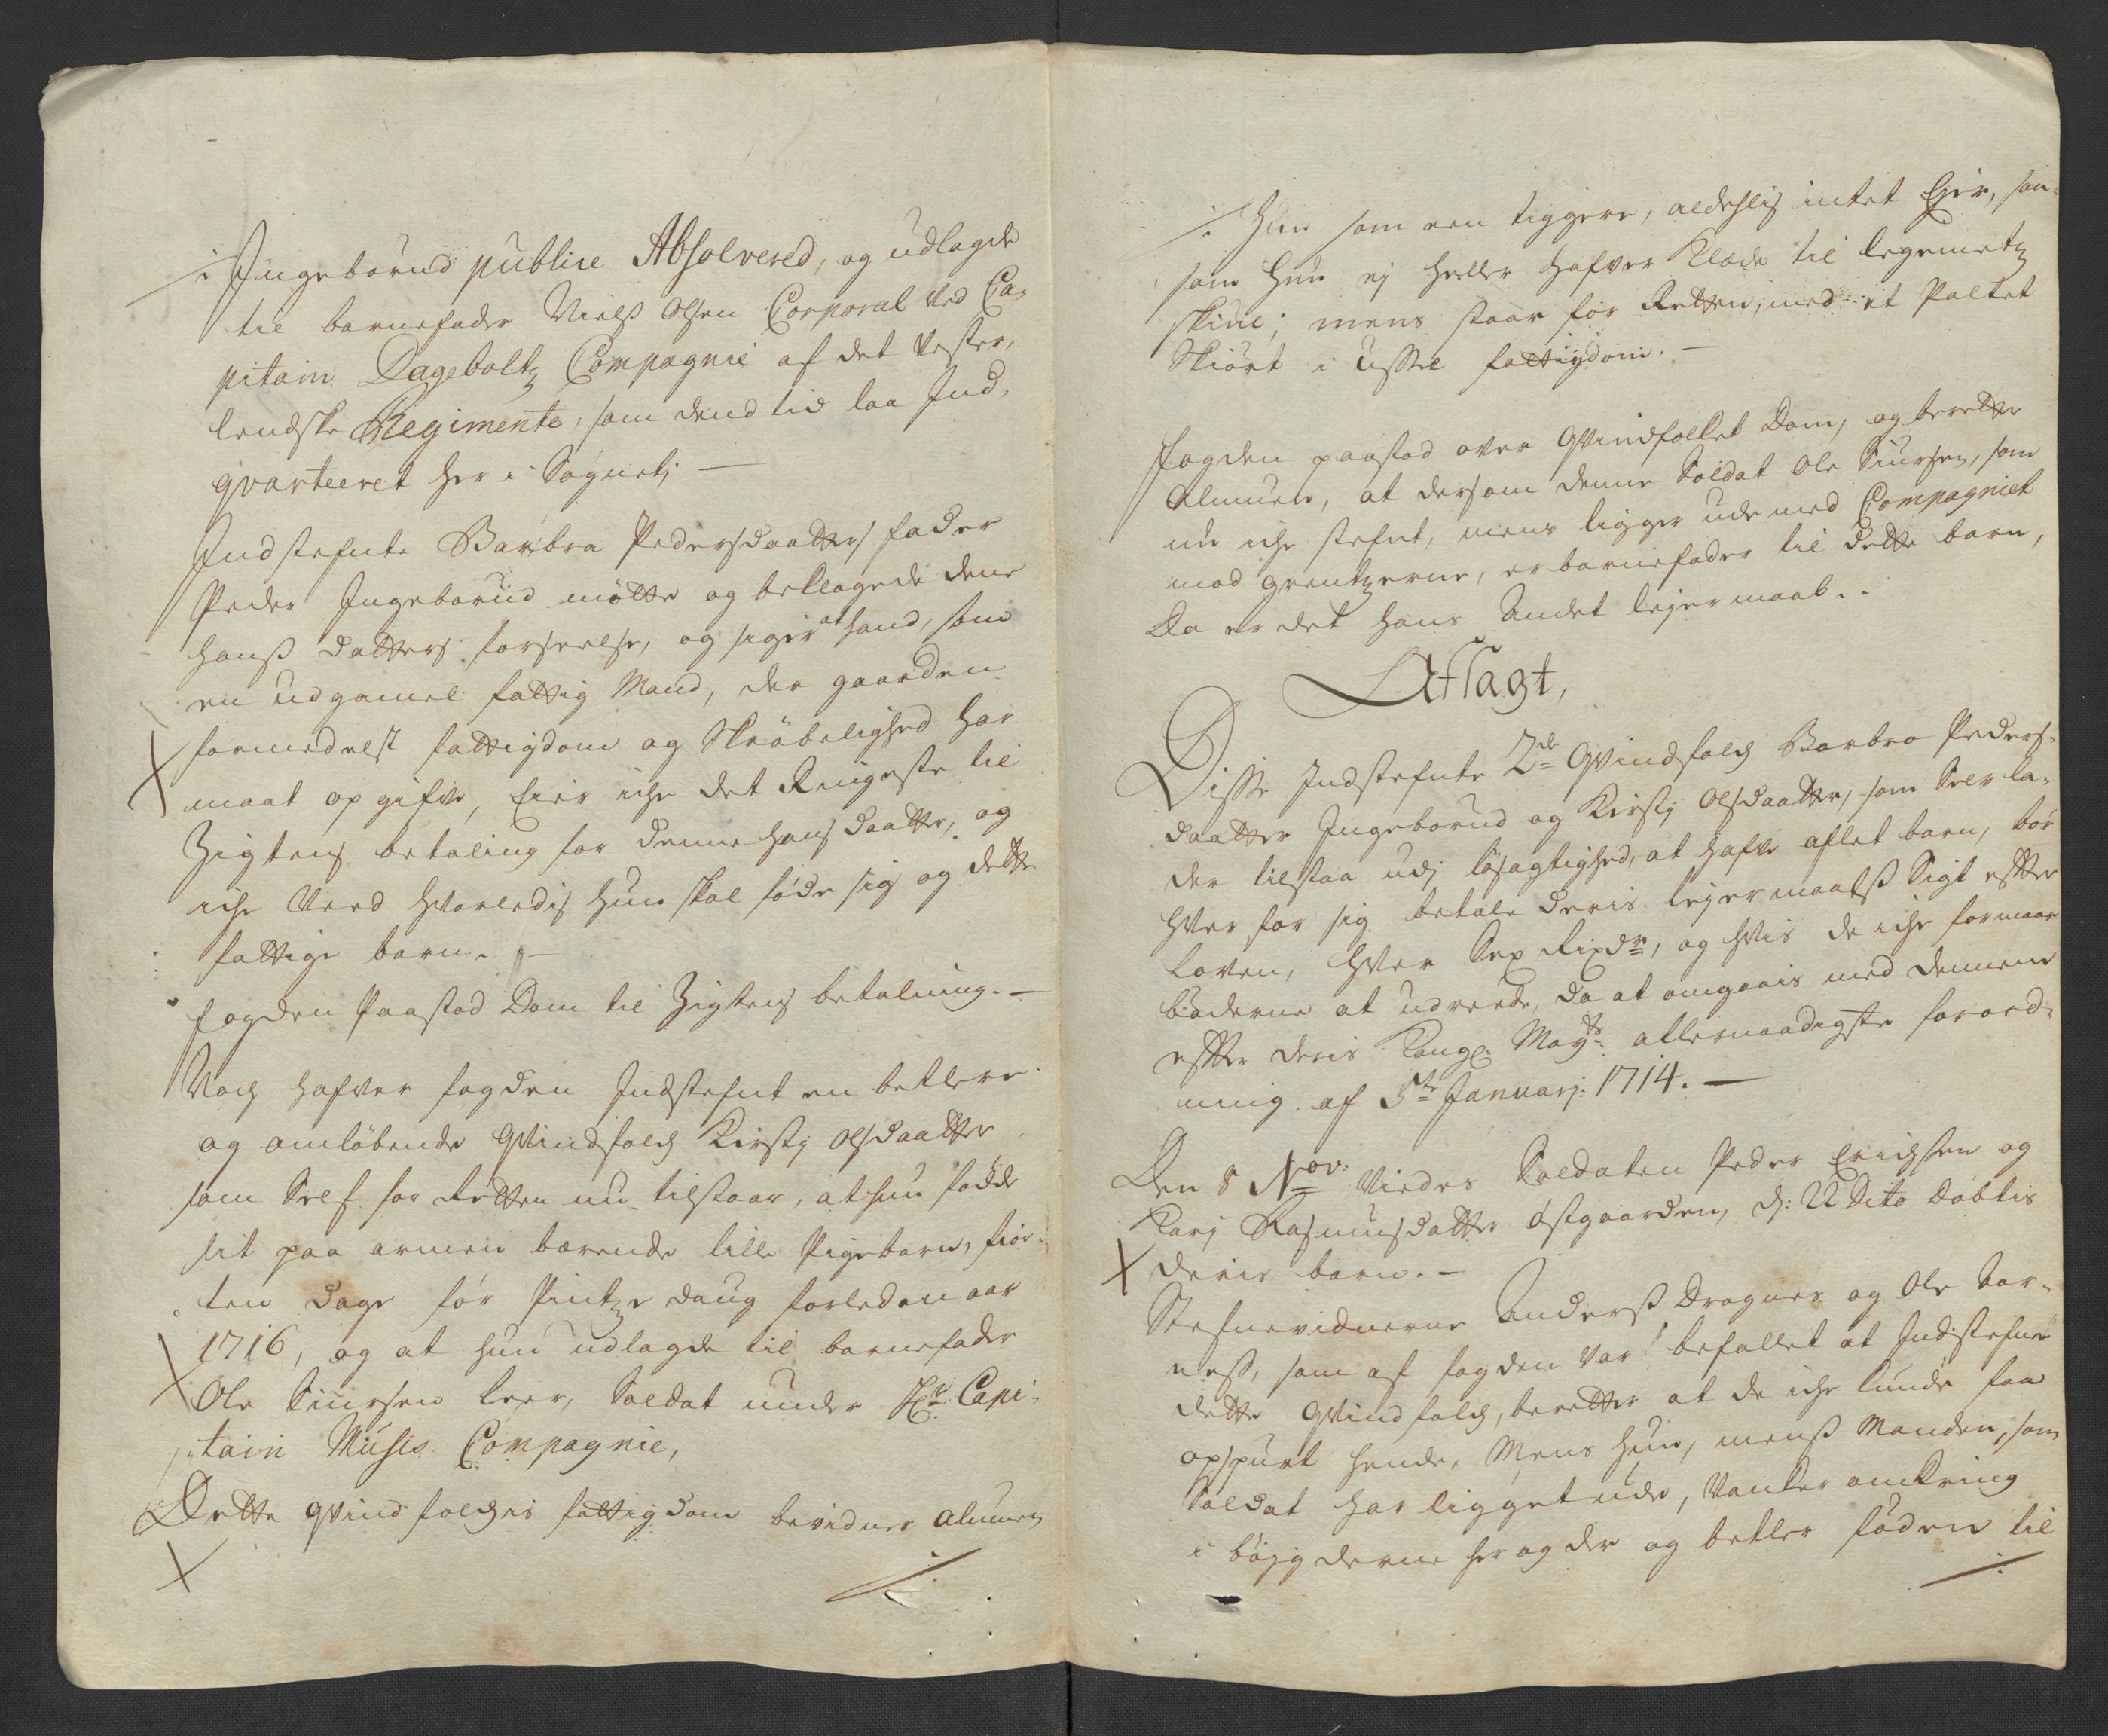 i Ingeborud publice Absolvered, og udlagde
til barnefader Niels Olsen Corporal ved Ca-
pitain Dageboltz Compagnie af det Vester,
lendske Regimente, som dend tid laa Ind,
qvarteeret her i Sognet;
Indstefnte Barbra Pedersdaatters fader
Peder Ingeborud mötte og beklagede dene
hanß datters forseelse, og siger at hand, som
en udgamel fattig Mand, der gaarden
formedelst fattigdom og Skröbelighed har
maat opgifve, Eier iche det Ringeste til
Zigtens betaling for denne hans daatter, og
iche Veed hvorledis hun skal föde sig og dette
fattige barn.
fogden Paastod Dom til Zigtens betalning.
Noch hafver fogden Indstefnt en betlere
og omlöbende qvindfolch Kirstj Olsdaatter
som Self for Retten nu tilstaar, at hun födde
sit paa armen bærende lille Pigebarn, fior-
ten dage för Pintze daug forleden aar
1716, og at hun udlagde til barnefader
Ole Siursen Leer, Soldat under Hr Capi-
tain Muhls Compagnie,
Dette qvindfolchis fattigdom bevidner almuen
./.
/. Hun som een tiggere, aldeslis intet Eier, saa-
som hun ej heller hafver Klæde til legemetz
skiul; mens staar for Retten, med et Paltet
Skiört i ussel fattigdom.
fogden paastod over qvindfolket Dom, og berette
Almuen, at dersom denne Soldat Ole Siursen, som
nu iche stefnt, mens ligger ude med Compagniet
mod grentzerne, er barnefader til dette barn,
Da er det hans andet lejermaal.
Afsagt,
Disse Indstefnte 2de qvindfolch Barbro Peders-
daatter Ingeborud og Kirstj Olsdaatter, som Selv la-
der tilstaa udj lösagtighed, at hafve aflet barn, bör
hver for sig betale deris lejermaalß Sigt efter
Loven, hver Sex Rixdr, og hvis de iche formaar
böderne at udreede, da at omgaais med dennem
efter deris Kongl: Mayts allernaadigste forord-
ning af 5te Januarj: 1714.
Den 8 Nov: Viedes Soldaten Peder Erichsen og
Karj Rasmusdatter Östgaarden, d: 22 Dito döbtis
deris barn.
Stefnevidnerne Anderß Dragnes og Ole Aar-
neß, som af fogden var befallet at Indstefne
dette qvindfolch, beretter at de iche kunde faa
opspurt hende, Mens hun, menß Manden, som
Soldat har ligget ude, Vanker omkring
i bögderne her og der og betler föden til
./.